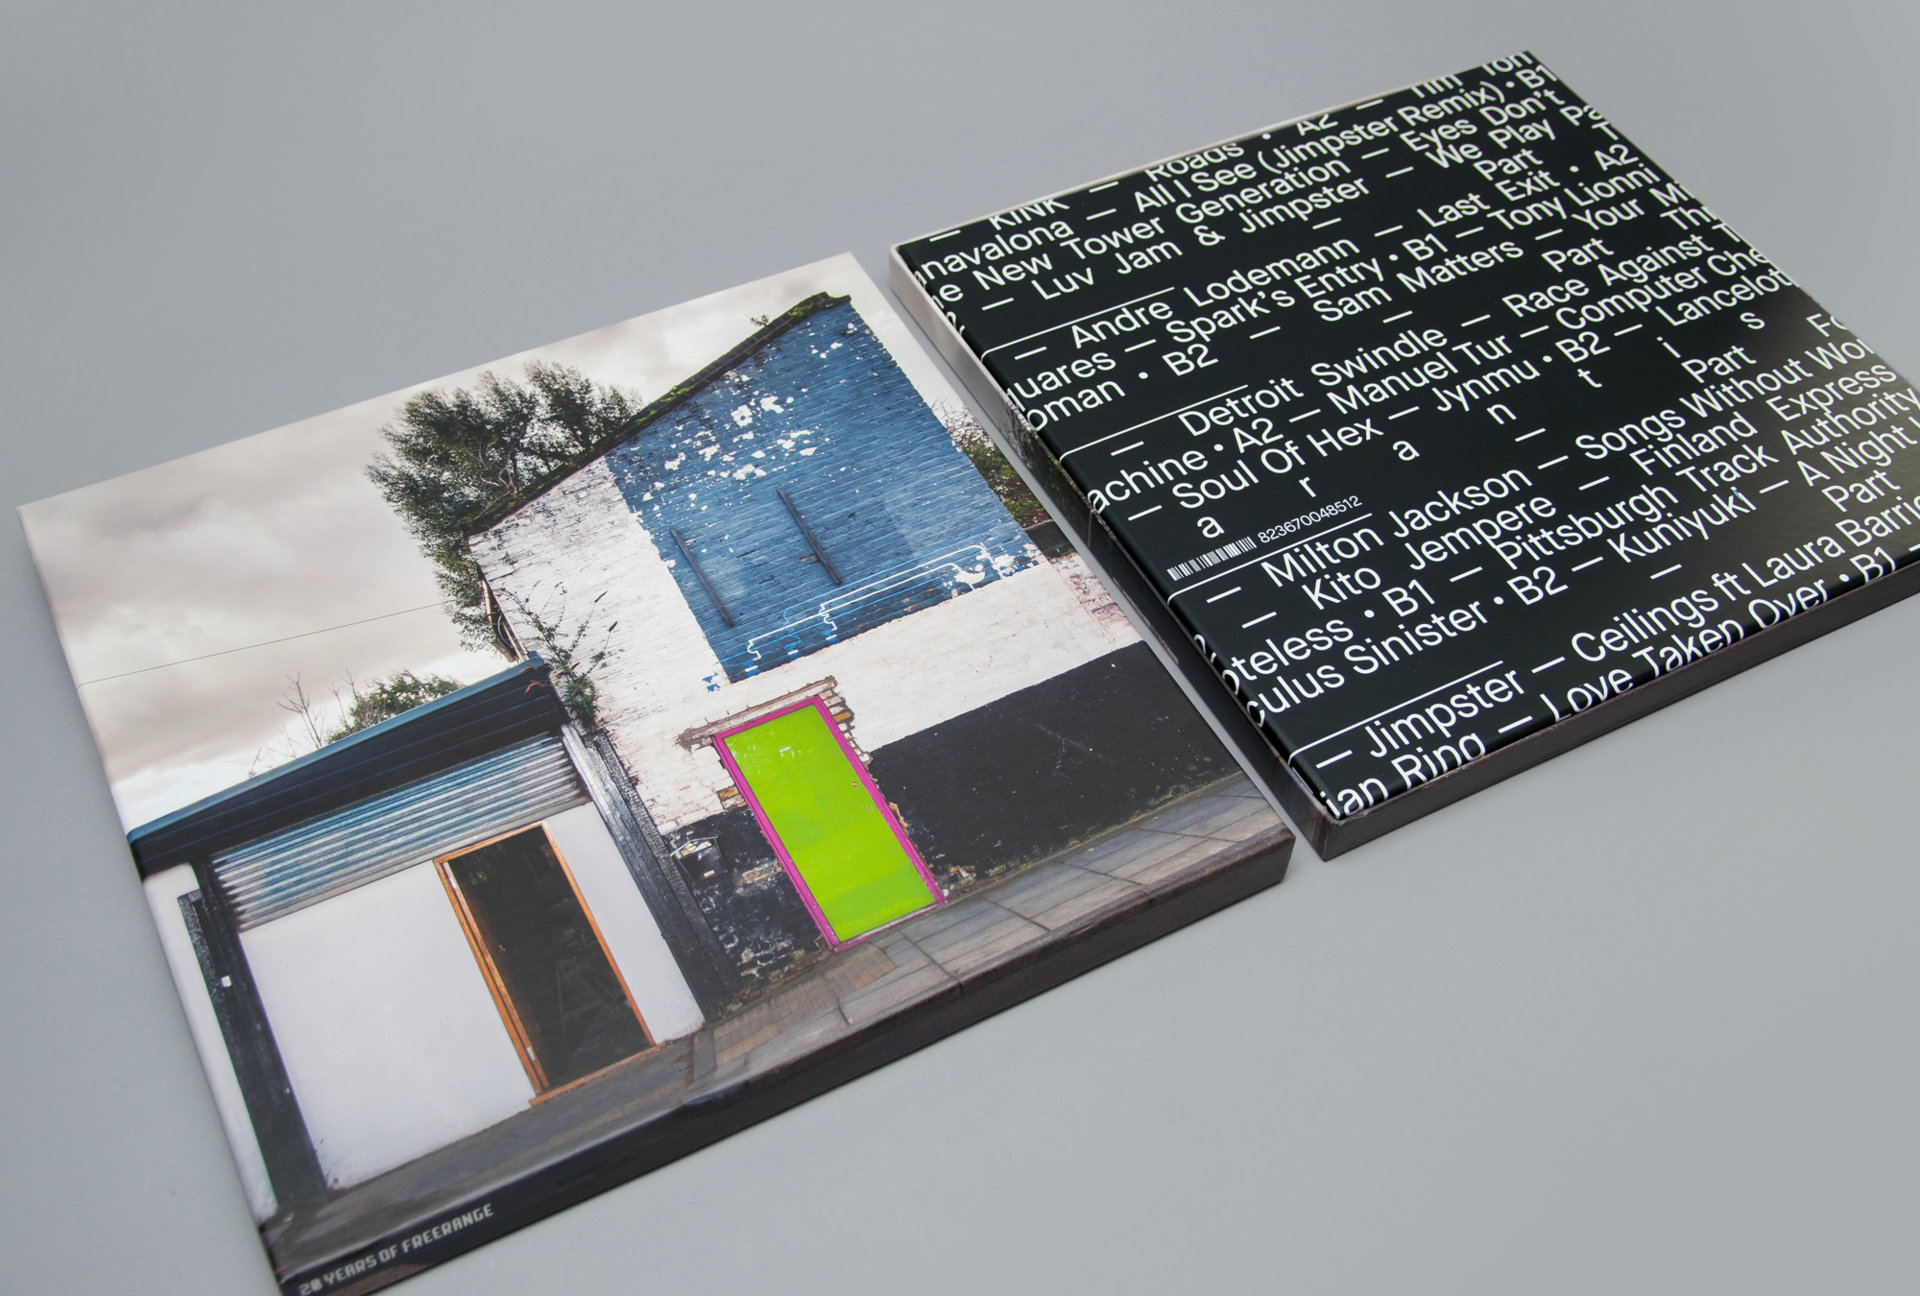 20 YEARS OF FREERANGE
— KINK — Roads • A2 — Tim
— All I See (Jimpster Remix) • B1
New Tower Generation — Eyes Don't
— Luv Jam & Jimpster — We Play
— Part
— Andre Lodemann — Last Exit • A2
— Spark's Entry • B1 — Tony Lionni
• B2 — Sam Matters — Your
— Part
— Detroit Swindle — Race Against
• A2 — Manuel Tur — Computer
— Soul Of Hex — Jynmu • B2 — Lancelot
a r a n t i s
— Part
823670048512
— Milton Jackson — Songs Without
— Kito Jempere — Finland Express
• B1 — Pittsburgh Track Authority
Sinister • B2 — Kuniyuki — A Night
— Part
— Jimpster — Ceilings ft Laura
Ring — Love Taken Over • B1